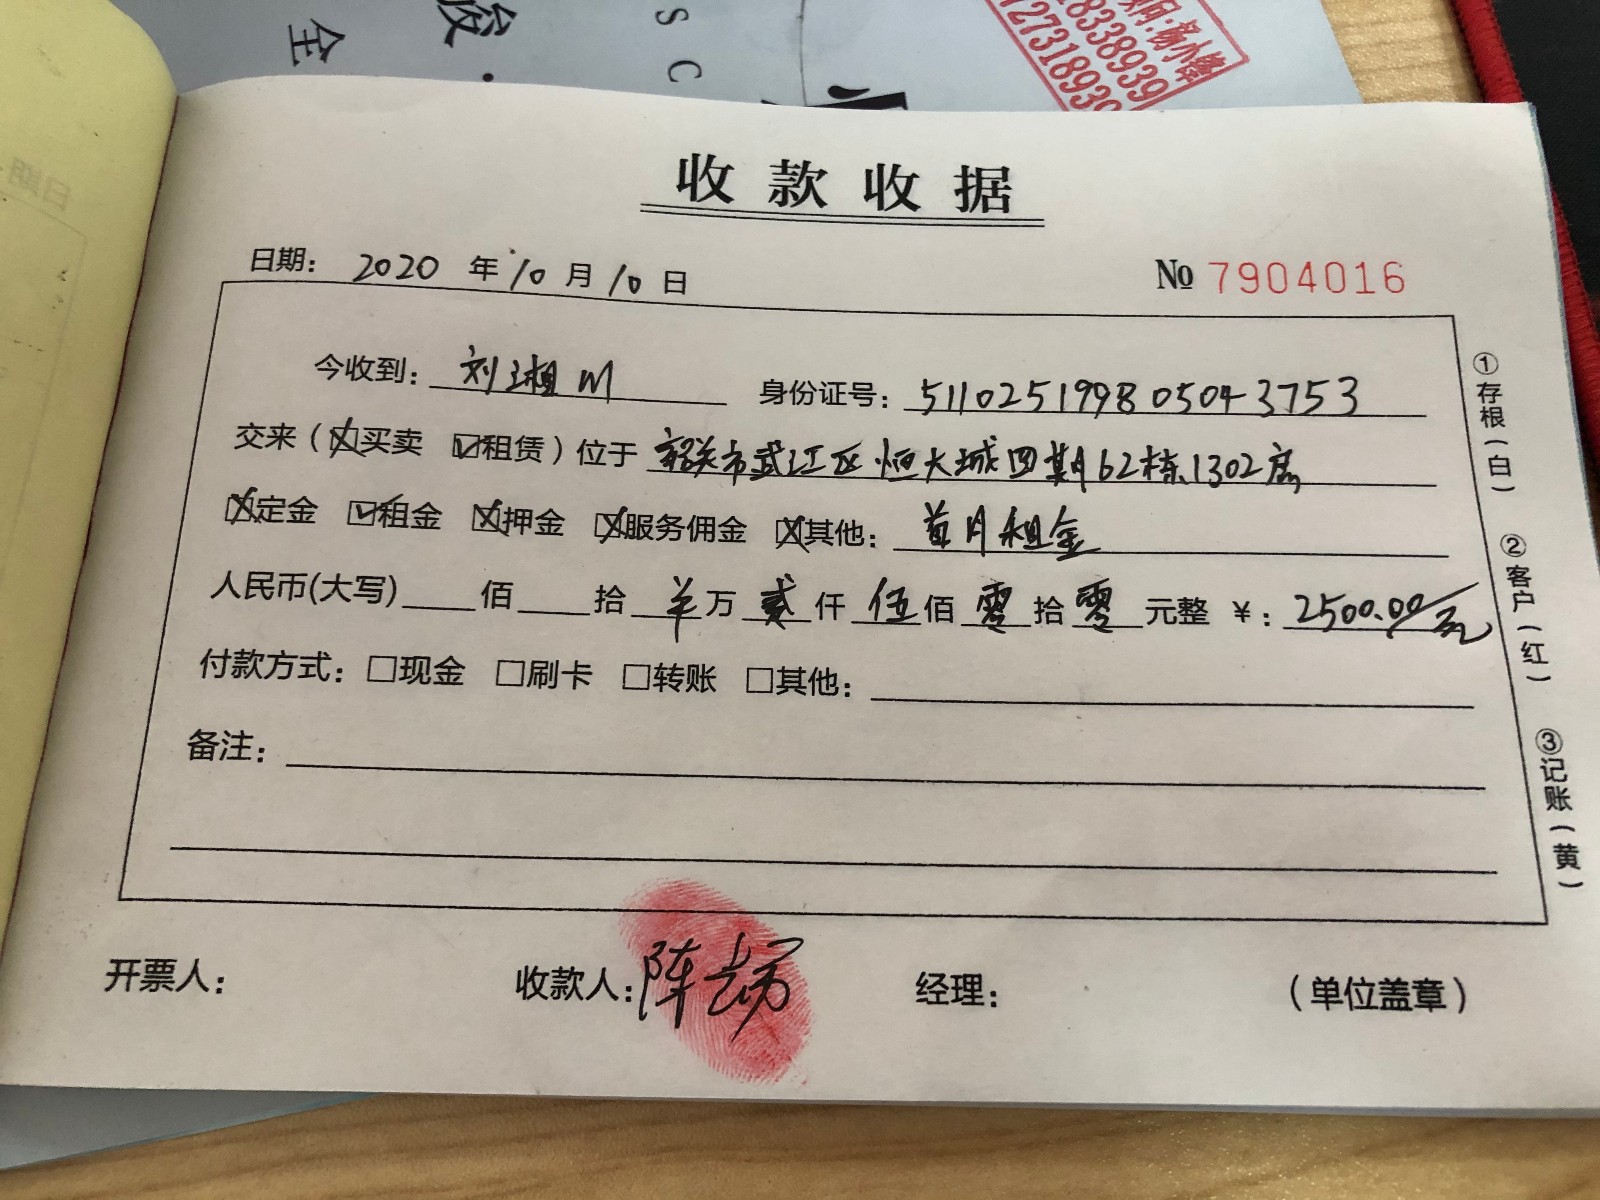 全
发
S C
顾问:杨小
8338939
727318939
收款收据
日期: 2020 年 10 月 10 日 № 7904016
今收到: 刘湘川 身份证号: 511025199805043753
交来(☒买卖 ☑租赁)位于 韶关市武江区恒大城四期62栋1302房
☒定金 ☑租金 ☒押金 ☒服务佣金 ☒其他: 首月租金
人民币(大写) 佰 拾 羊 万 贰 仟 伍 佰 零 拾 零 元整 ¥: 2500.00/元
付款方式: □现金 □刷卡 □转账 □其他:
备注:
开票人: 收款人: 陈 经理: (单位盖章)
①存根(白)
②客户(红)
③记账(黄)
日期